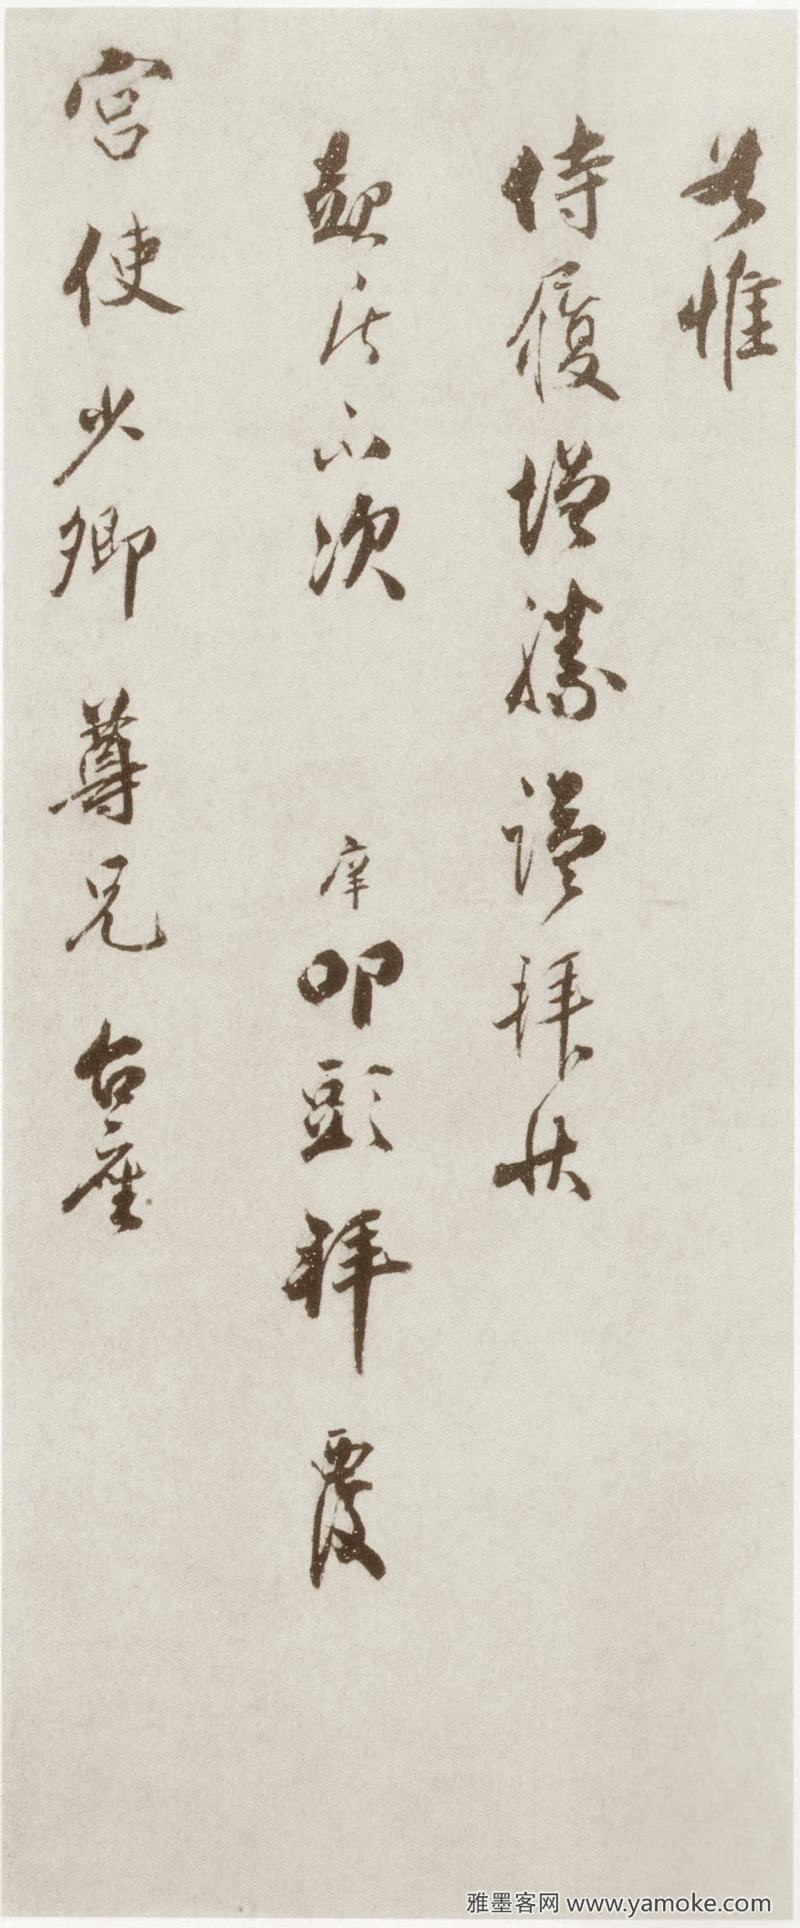 惟
侍履增勝謹拜狀
起居不次 庠 叩頭拜覆
宮使少卿尊兄台座
雅墨客网 www.yamoke.com